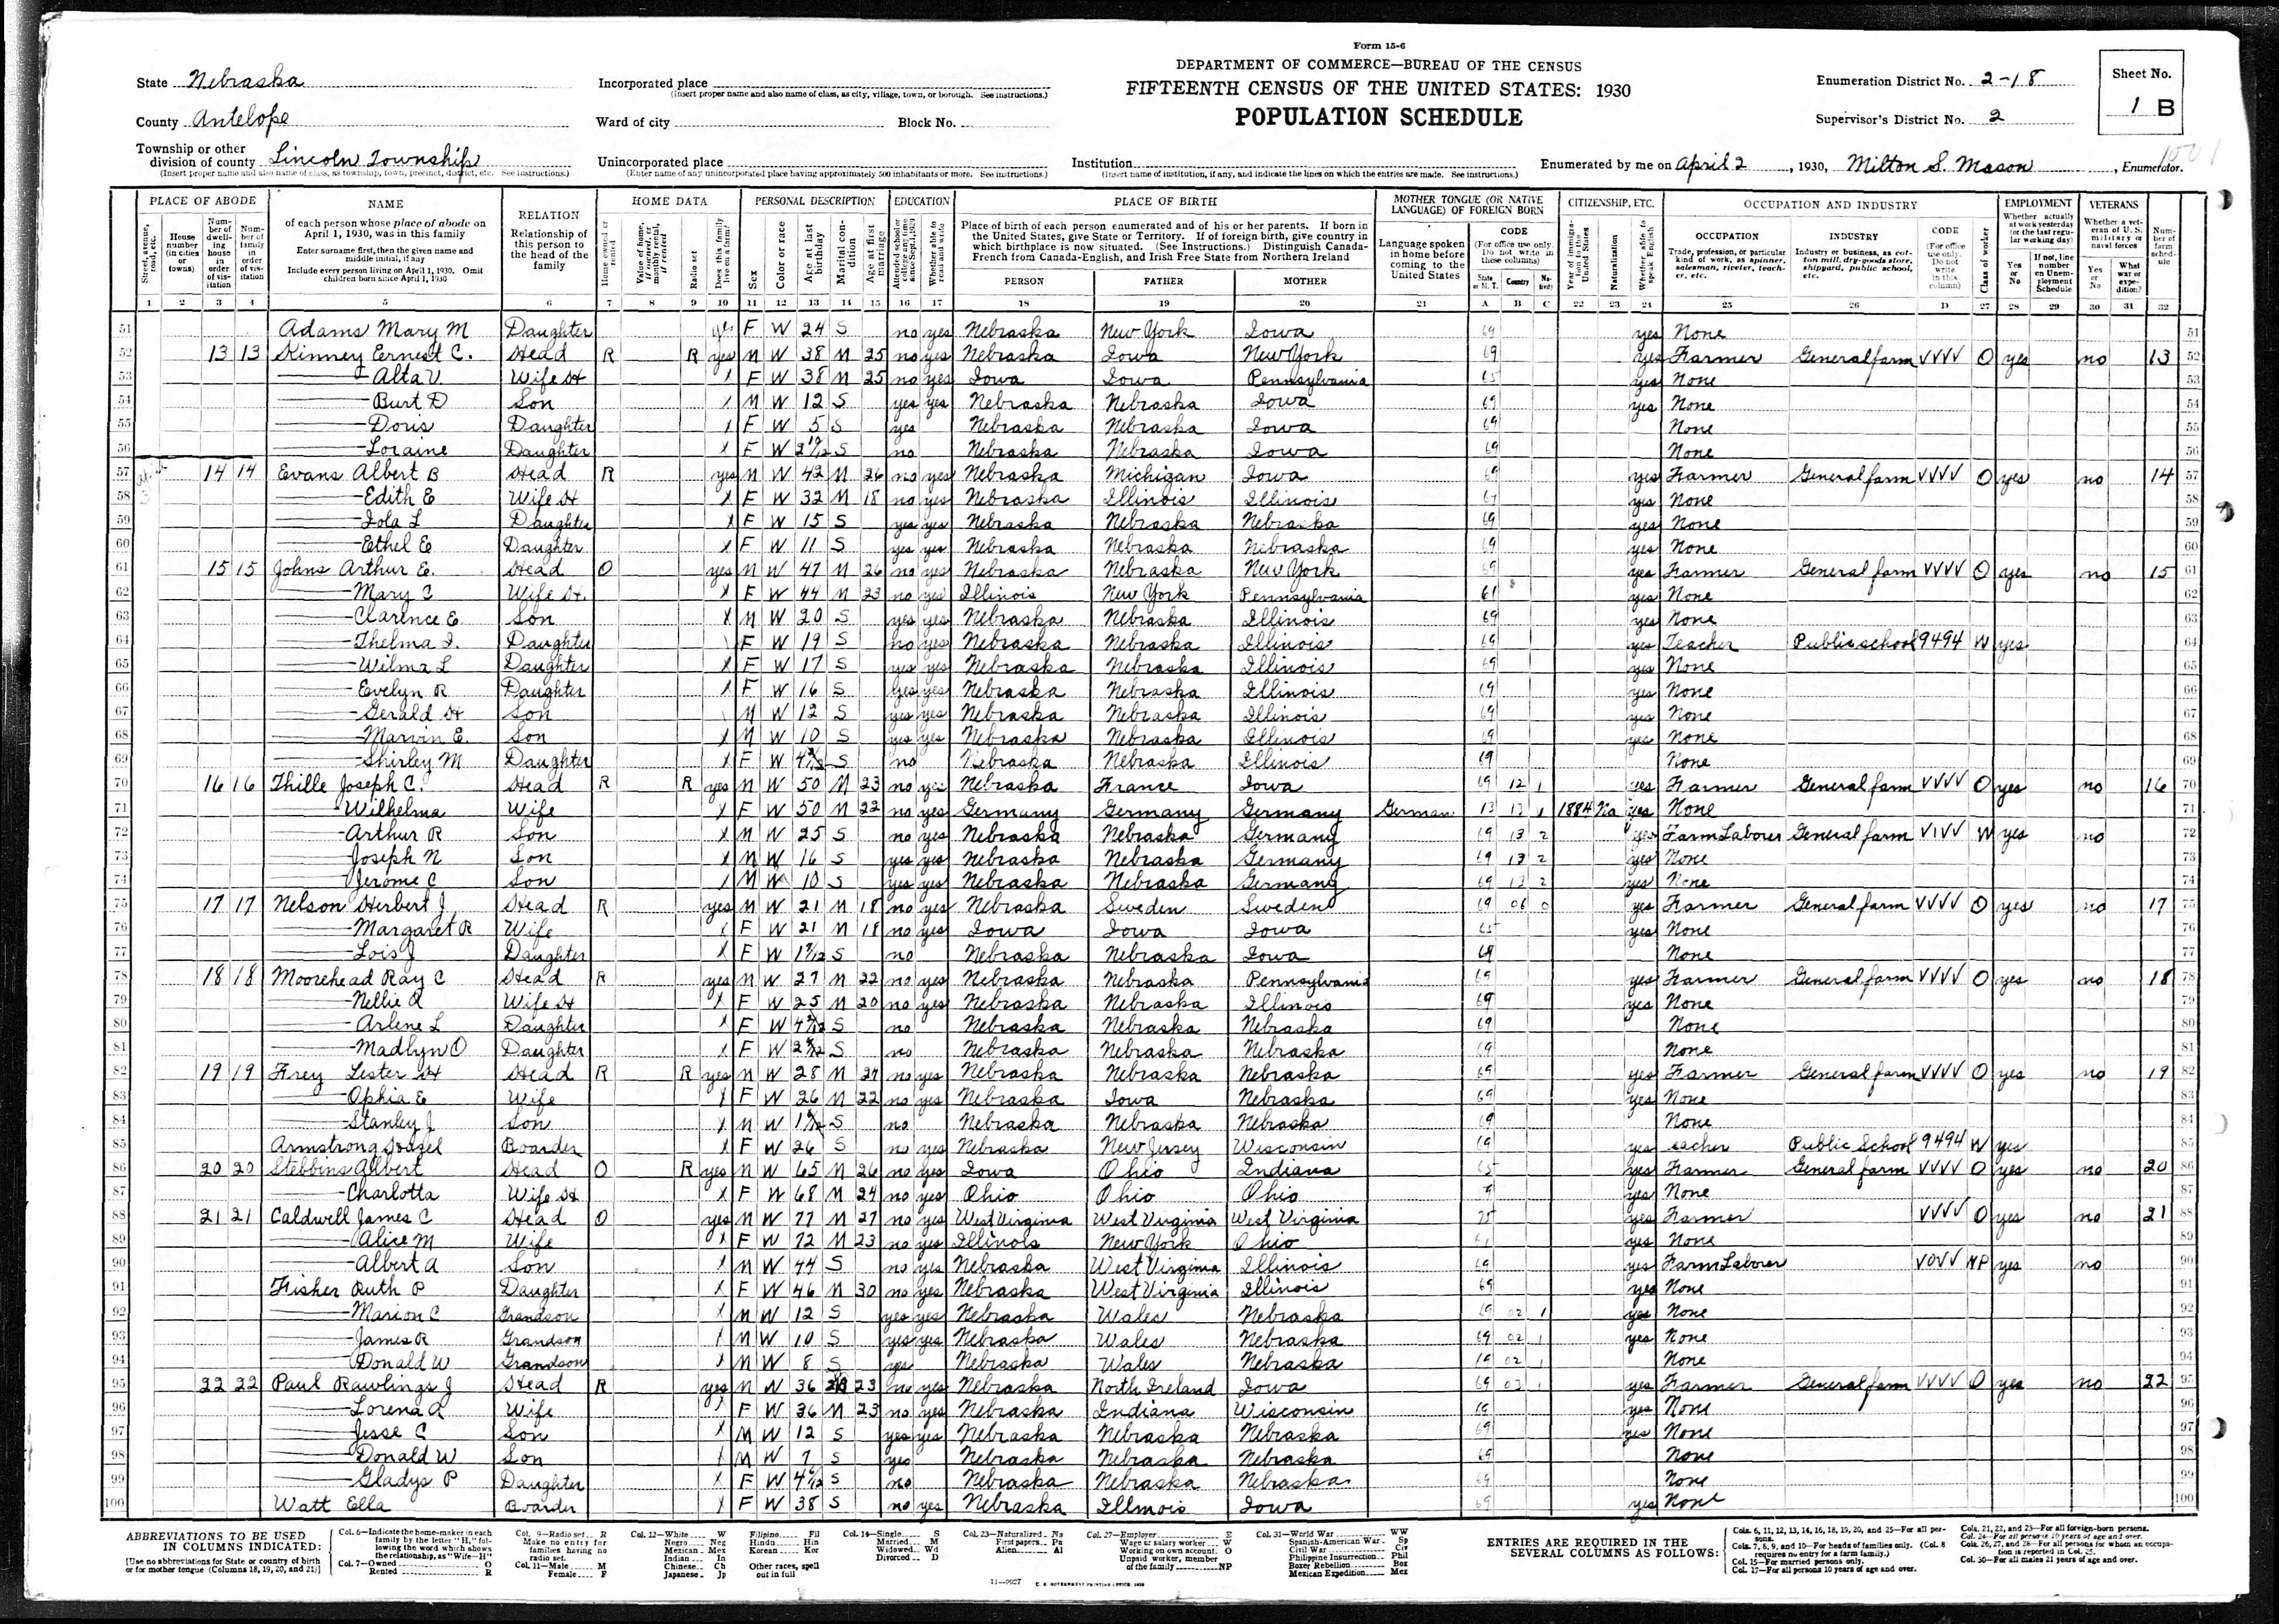 Form 15-6
DEPARTMENT OF COMMERCE—BUREAU OF THE CENSUS
FIFTEENTH CENSUS OF THE UNITED STATES: 1930
POPULATION SCHEDULE
State Nebraska
County Antelope
Township or other division of county Lincoln Township
(Insert proper name and also name of class, as township, town, precinct, district, etc. See instructions.)
Incorporated place
(Insert proper name and also name of class, as city, village, town, or borough. See instructions.)
Ward of city Block No.
Unincorporated place
(Enter name of any unincorporated place having approximately 500 inhabitants or more. See instructions.)
Institution
(Insert name of institution, if any, and indicate the lines on which the entries are made. See instructions.)
Enumeration District No. 2-18
Supervisor's District No. 2
Sheet No. 1 B
Enumerated by me on April 2, 1930, Milton S. Mason, Enumerator.
PLACE OF ABODE NAME RELATION HOME DATA PERSONAL DESCRIPTION EDUCATION PLACE OF BIRTH MOTHER TONGUE (OR NATIVE LANGUAGE) OF FOREIGN BORN CITIZENSHIP, ETC. OCCUPATION AND INDUSTRY EMPLOYMENT VETERANS
of each person whose place of abode on April 1, 1930, was in this family
Enter surname first, then the given name and middle initial, if any
Include every person living on April 1, 1930. Omit children born since April 1, 1930
Relationship of this person to the head of the family
Place of birth of each person enumerated and of his or her parents. If born in the United States, give State or Territory. If of foreign birth, give country in which birthplace is now situated. (See Instructions.) Distinguish Canada-French from Canada-English, and Irish Free State from Northern Ireland
PERSON FATHER MOTHER
Language spoken in home before coming to the United States
OCCUPATION INDUSTRY CODE
1 2 3 4 5 6 7 8 9 10 11 12 13 14 15 16 17 18 19 20 21 A B C 22 23 24 25 26 D 27 28 29 30 31 32
51 Adams Mary M Daughter yes F W 24 S no yes Nebraska New York Iowa 69 yes None 51
52 13 13 Kinney Ernest C. Head R R yes M W 38 M 25 no yes Nebraska Iowa New York 69 yes Farmer General farm VVVV O yes no 13 52
53 Alta V. Wife H X F W 38 M 25 no yes Iowa Iowa Pennsylvania 65 yes None 53
54 Burt D Son X M W 12 S yes yes Nebraska Nebraska Iowa 69 yes None 54
55 Doris Daughter X F W 5 S yes Nebraska Nebraska Iowa 69 None 55
56 Loraine Daughter X F W S no Nebraska Nebraska Iowa 69 None 56
57 14 14 Evans Albert B Head R yes M W 42 M 26 no yes Nebraska Michigan Iowa 69 yes Farmer General farm VVVV O yes no 14 57
58 Edith E Wife H X F W 32 M 18 no yes Nebraska Illinois Illinois 69 yes None 58
59 Iola L Daughter X F W 15 S yes yes Nebraska Nebraska Nebraska 69 yes None 59
60 Ethel E Daughter X F W 11 S yes yes Nebraska Nebraska Nebraska 69 yes None 60
61 15 15 Johns Arthur E. Head O yes M W 47 M 26 no yes Nebraska Nebraska New York 69 yes Farmer General farm VVVV O yes no 15 61
62 Mary C Wife H. X F W 44 M 23 no yes Illinois New York Pennsylvania 61 yes None 62
63 Clarence E. Son X M W 20 S yes yes Nebraska Nebraska Illinois 69 yes None 63
64 Thelma I. Daughter F W 19 S no yes Nebraska Nebraska Illinois 69 yes Teacher Public school 9494 W yes 64
65 Wilma L Daughter X F W 17 S yes yes Nebraska Nebraska Illinois 69 yes None 65
66 Evelyn R Daughter X F W 16 S yes yes Nebraska Nebraska Illinois 69 yes None 66
67 Gerald H Son M W 12 S yes yes Nebraska Nebraska Illinois 69 yes None 67
68 Marvin E. Son X M W 10 S yes yes Nebraska Nebraska Illinois 69 yes None 68
69 Shirley M Daughter X F W S no Nebraska Nebraska Illinois 69 None 69
70 16 16 Thille Joseph C. Head R R yes M W 50 M 23 no yes Nebraska France Iowa 69 12 1 yes Farmer General farm VVVV O yes no 16 70
71 Wilhelma Wife X F W 50 M 22 no yes Germany Germany Germany German 13 13 1884 Na yes None 71
72 Arthur R Son X M W 25 S no yes Nebraska Nebraska Germany 69 13 2 yes Farm Laborer General farm VIVV W yes no 72
73 Joseph N Son X M W 16 S yes yes Nebraska Nebraska Germany 69 13 2 yes None 73
74 Jerome C Son M W 10 S yes yes Nebraska Nebraska Germany 69 13 2 yes None 74
75 17 17 Nelson Herbert J Head R yes M W 21 M 18 no yes Nebraska Sweden Sweden 69 06 0 yes Farmer General farm VVVV O yes no 17 75
76 Margaret R Wife X F W 21 M 18 no yes Iowa Iowa Iowa 65 yes None 76
77 Lois J Daughter X F W S no Nebraska Nebraska Iowa 69 None 77
78 18 18 Moorehead Ray C Head R yes M W 27 M 22 no yes Nebraska Nebraska Pennsylvania 69 yes Farmer General farm VVVV O yes no 18 78
79 Nellie A Wife H X F W 25 M 20 no yes Nebraska Nebraska Illinois 69 yes None 79
80 Arlene L Daughter X F W S no Nebraska Nebraska Nebraska 69 None 80
81 Madlyn O Daughter X F W S no Nebraska Nebraska Nebraska 69 None 81
82 19 19 Frey Lester H Head R R yes M W 28 M no yes Nebraska Nebraska Nebraska 69 yes Farmer General farm VVVV O yes no 19 82
83 Ophia E Wife X F W 26 M 22 no yes Nebraska Iowa Nebraska 69 yes None 83
84 Stanley J Son X M W S no Nebraska Nebraska Nebraska 69 None 84
85 Armstrong Hazel Boarder X F W 26 S no yes Nebraska New Jersey Wisconsin 69 yes eacher Public School 9494 W yes 85
86 20 20 Stebbins Albert Head O R yes M W 65 M 26 no yes Iowa Ohio Indiana 65 yes Farmer General farm VVVV O yes no 20 86
87 Charlotta Wife H X F W 68 M 24 no yes Ohio Ohio Ohio yes None 87
88 21 21 Caldwell James C Head O yes M W 77 M 27 no yes West Virginia West Virginia West Virginia 75 yes Farmer VVVV O yes no 21 88
89 Alice M Wife X F W 72 M 23 no yes Illinois New York Ohio 61 yes None 89
90 Albert A Son X M W 44 S no yes Nebraska West Virginia Illinois 69 yes Farm Laborer VOVV NP yes no 90
91 Fisher Ruth P Daughter X F W 46 M 30 no yes Nebraska West Virginia Illinois 69 yes None 91
92 Marion C Grandson X M W 12 S yes yes Nebraska Wales Nebraska 69 02 1 yes None 92
93 James R Grandson X M W 10 S yes yes Nebraska Wales Nebraska 69 02 1 yes None 93
94 Donald W Grandson X M W 8 S yes Nebraska Wales Nebraska 69 02 1 None 94
95 22 22 Paul Rawlings J Head R yes M W 36 23 no yes Nebraska North Ireland Iowa 69 03 1 yes Farmer General farm VVVV O yes no 22 95
96 Lorena A Wife X F W 36 M 23 no yes Nebraska Indiana Wisconsin 69 yes None 96
97 Jesse C Son X M W 12 S yes yes Nebraska Nebraska Nebraska 69 yes None 97
98 Donald W Son X M W 7 S yes Nebraska Nebraska Nebraska 69 None 98
99 Gladys P Daughter X F W S no Nebraska Nebraska Nebraska 69 None 99
100 Watt Ella Boarder X F W 38 S no yes Nebraska Illinois Iowa 69 yes None 100
ABBREVIATIONS TO BE USED IN COLUMNS INDICATED:
[Use no abbreviations for State or country of birth or for mother tongue (Columns 18, 19, 20, and 21)]
Col. 6—Indicate the home-maker in each family by the letter "H," following the word which shows the relationship, as "Wife—H"
Col. 7—Owned O Rented R
Col. 9—Radio set R Make no entry for families having no radio set.
Col. 11—Male M Female F
Col. 12—White W Negro Neg Mexican Mex Indian In Chinese Ch Japanese Jp Filipino Fil Hindu Hin Korean Kor Other races, spell out in full
Col. 14—Single S Married M Widowed Wd Divorced D
Col. 23—Naturalized Na First papers Pa Alien Al
Col. 27—Employer E Wage or salary worker W Working on own account O Unpaid worker, member of the family NP
Col. 31—World War WW Spanish-American War Sp Civil War Civ Philippine Insurrection Phil Boxer Rebellion Box Mexican Expedition Mex
ENTRIES ARE REQUIRED IN THE SEVERAL COLUMNS AS FOLLOWS:
Cols. 6, 11, 12, 13, 14, 16, 18, 19, 20, and 25—For all persons.
Cols. 7, 8, 9, and 10—For heads of families only. (Col. 8 requires no entry for a farm family.)
Col. 15—For married persons only.
Col. 17—For all persons 10 years of age and over.
Cols. 21, 22, and 23—For all foreign-born persons.
Col. 24—For all persons 10 years of age and over.
Cols. 26, 27, and 28—For all persons for whom an occupation is reported in Col. 25.
Col. 30—For all males 21 years of age and over.
11—9927 U. S. GOVERNMENT PRINTING OFFICE